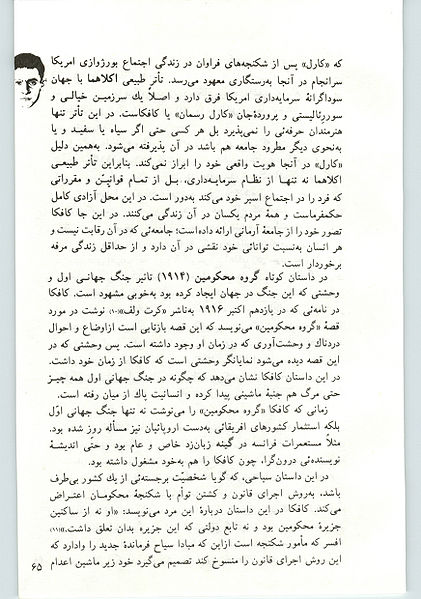 که «کارل» پس از شکنجه‌های فراوان در زندگی اجتماع بورژوازی امریکا
سرانجام در آنجا به‌رستگاری معهود می‌رسد. تأتر طبیعی اکلاهما با جهان
سوداگرانهٔ سرمایه‌داری امریکا فرق دارد و اصلاً یك سرزمین خیالی و
سوررئالیستی و پرورده‌جان «کارل رسمان» یا کافکاست. در این تأتر تنها
هنرمندان حرفه‌ئی را نمی‌پذیرد بل هر کسی حتی اگر سیاه یا سفید و یا
به‌نحوی دیگر مطرود جامعه هم باشد در آن پذیرفته می‌شود. به‌همین دلیل
«کارل» در آنجا هویت واقعی خود را ابراز نمی‌کند. بنابراین تأتر طبیعی
اکلاهما نه تنها از نظام سرمایه‌داری، بل از تمام قوانین و مقرراتی
که فرد را در اجتماع اسیر خود می‌کند به‌دور است. در این محل آزادی کامل
حکمفرماست و همهٔ مردم یکسان در آن زندگی می‌کنند. در این جا کافکا
تصور خود را از جامعهٔ آرمانی ارائه داده است؛ جامعه‌ئی که در آن رقابت نیست و
هر انسان به‌نسبت توانائی خود نقشی در آن دارد و از حداقل زندگی مرفه
برخوردار است.
در داستان کوتاه گروه محکومین (۱۹۱۴) تاثیر جنگ جهانی اول و
وحشتی که این جنگ در جهان ایجاد کرده بود به‌خوبی مشهود است. کافکا
در نامه‌ئی که در یازدهم اکتبر ۱۹۱۶ به‌ناشر «کرت ولف»(۱۰) نوشت در مورد
قصهٔ «گروه محکومین» می‌نویسد که این قصه بازتابی است ازاوضاع و احوال
دردناك و وحشت‌آوری که در زمان او وجود داشته است. پس وحشتی که در
این قصه دیده می‌شود نمایانگر وحشتی است که کافکا از زمان خود داشت.
در این داستان کافکا نشان می‌دهد که چگونه در جنگ جهانی اول همه چیز
حتی مرگ هم جنبهٔ ماشینی پیدا کرده و انسانیت پاك از میان رفته است.
زمانی که کافکا «گروه محکومین» را می‌نوشت نه تنها جنگ جهانی اوّل
بلکه استثمار کشورهای افریقائی به‌دست اروپائیان نیز مسأله روز شده بود.
مثلاً مستعمرات فرانسه در گینه زبان‌زد خاص و عام بود و حتّی اندیشهٔ
نویسنده‌ئی درون‌گرا، چون کافکا را هم به‌خود مشغول داشته بود.
در این داستان سیاحی، که گویا شخصیّت برجسته‌ئی از یك کشور بی‌طرف
باشد، به‌روش اجرای قانون و کشتن توأم با شکنجهٔ محکومان اعتراض
می‌کند. کافکا در این داستان دربارهٔ این مرد می‌نویسد: «او نه از ساکنین
جزیرهٔ محکومین بود و نه تابع دولتی که این جزیره بدان تعلق داشت.»(۱۱)
افسر که مأمور شکنجه است ازاین که مبادا سیاح فرماندهٔ جدید را وادارد که
این روش اجرای قانون را منسوخ کند تصمیم می‌گیرد خود زیر ماشین اعدام
۶۵